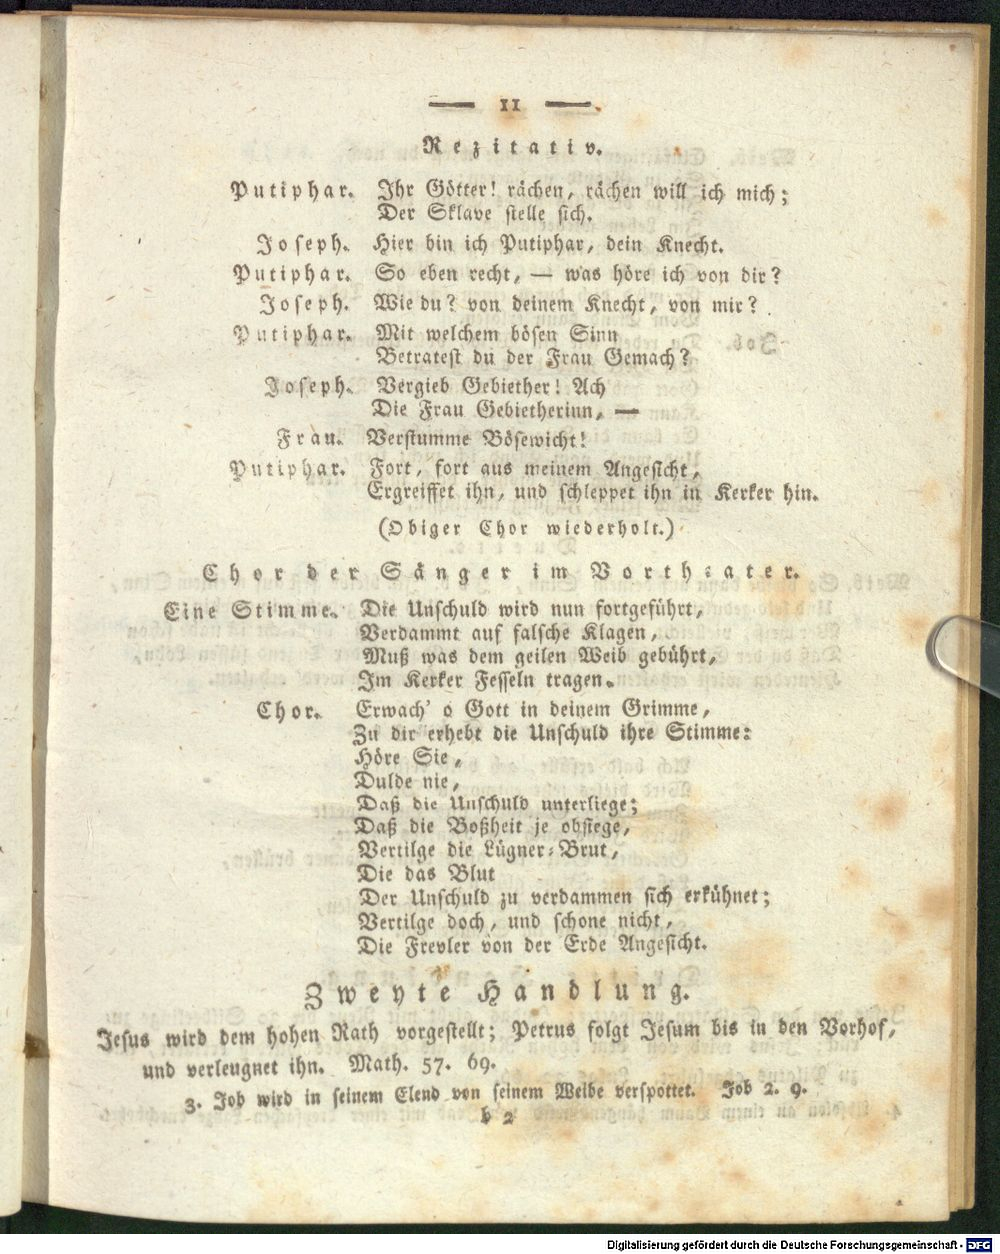 — 11 —
Rezitativ.
Putiphar. Ihr Götter! rächen, rächen will ich mich;
Der Sklave stelle sich.
Joseph. Hier bin ich Putiphar, dein Knecht.
Putiphar. So eben recht, — was höre ich von dir?
Joseph. Wie du? von deinem Knecht, von mir?
Putiphar. Mit welchem bösen Sinn
Betratest du der Frau Gemach?
Joseph. Vergieb Gebiether! Ach
Die Frau Gebietherinn, —
Frau. Verstumme Bösewicht!
Putiphar. Fort, fort aus meinem Angesicht,
Ergreiffet ihn, und schleppet ihn in Kerker hin.
(Obiger Chor wiederholt.)
Chor der Sänger im Vortheater.
Eine Stimme. Die Unschuld wird nun fortgeführt,
Verdammt auf falsche Klagen,
Muß was dem geilen Weib gebührt,
Im Kerker Fesseln tragen.
Chor. Erwach' o Gott in deinem Grimme,
Zu dir erhebt die Unschuld ihre Stimme:
Höre Sie,
Dulde nie,
Daß die Unschuld unterliege;
Daß die Boßheit je obsiege,
Vertilge die Lügner-Brut,
Die das Blut
Der Unschuld zu verdammen sich erkühnet;
Vertilge doch, und schone nicht,
Die Frevler von der Erde Angesicht.
Zweyte Handlung.
Jesus wird dem hohen Rath vorgestellt; Petrus folgt Jesum bis in den Vorhof,
und verleugnet ihn. Math. 57. 69.
3. Job wird in seinem Elend von seinem Weibe verspottet. Job 2. 9.
b 2
Digitalisierung gefördert durch die Deutsche Forschungsgemeinschaft - DFG